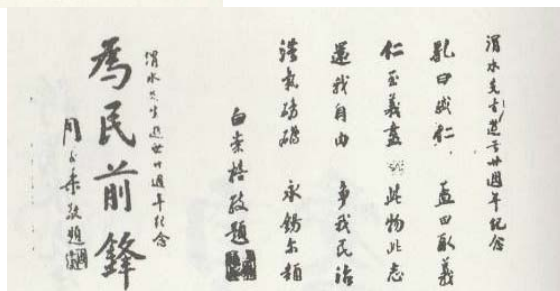 渭水先生逝世卄週年紀念
孔曰成仁 孟曰取義
仁至義盡 此物此志
還我自由 爭我民治
浩氣磅礡 永錫尔類
白崇禧敬題
渭水先生逝世卄週年紀念
為民前鋒
周 敬題